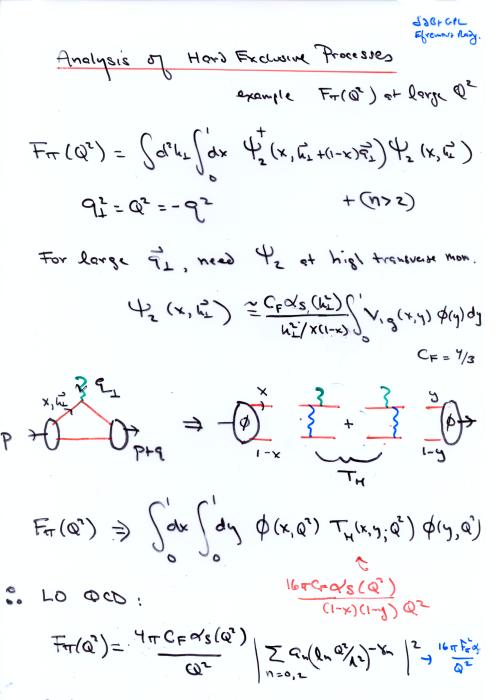 SJB + GPL
Efremov + Rady.
Analysis of Hard Exclusive Processes
example Fπ(Q²) at large Q²
Fπ(Q²) = ∫d²k⊥ ∫₀¹ dx Ψ₂⁺(x, k⃗⊥+(1-x)q⃗⊥) Ψ₂(x, k⃗⊥)
q⊥² = Q² = -q² + (n>2)
For large q⃗⊥, need Ψ₂ at high transverse mom.
Ψ₂(x, k⃗⊥) ≅ C_F αs(k⊥²) / k⊥²/x(1-x) ∫₀¹ V₁g(x,y) ϕ(y) dy
C_F = 4/3
x, k⃗⊥ q⊥ P P+q ⇒ ϕ x 1-x + y 1-y ϕ
T_H
Fπ(Q²) ⇒ ∫₀¹ dx ∫₀¹ dy ϕ(x,Q²) T_H(x,y;Q²) ϕ(y,Q²)
16π C_F αs(Q²) / (1-x)(1-y) Q²
∴ LO QCD:
Fπ(Q²) = 4π C_F αs(Q²) / Q² | Σ n=0,2 aₙ(ln Q²/Λ²)^-γₙ |² → 16π Fπ² αs / Q²